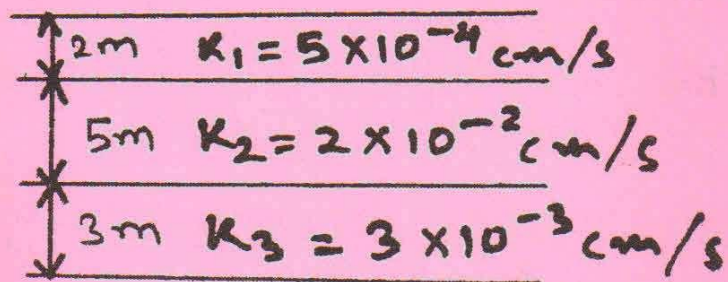 2m K₁ = 5 × 10⁻⁴ cm/s
5m K₂ = 2 × 10⁻² cm/s
3m K₃ = 3 × 10⁻³ cm/s